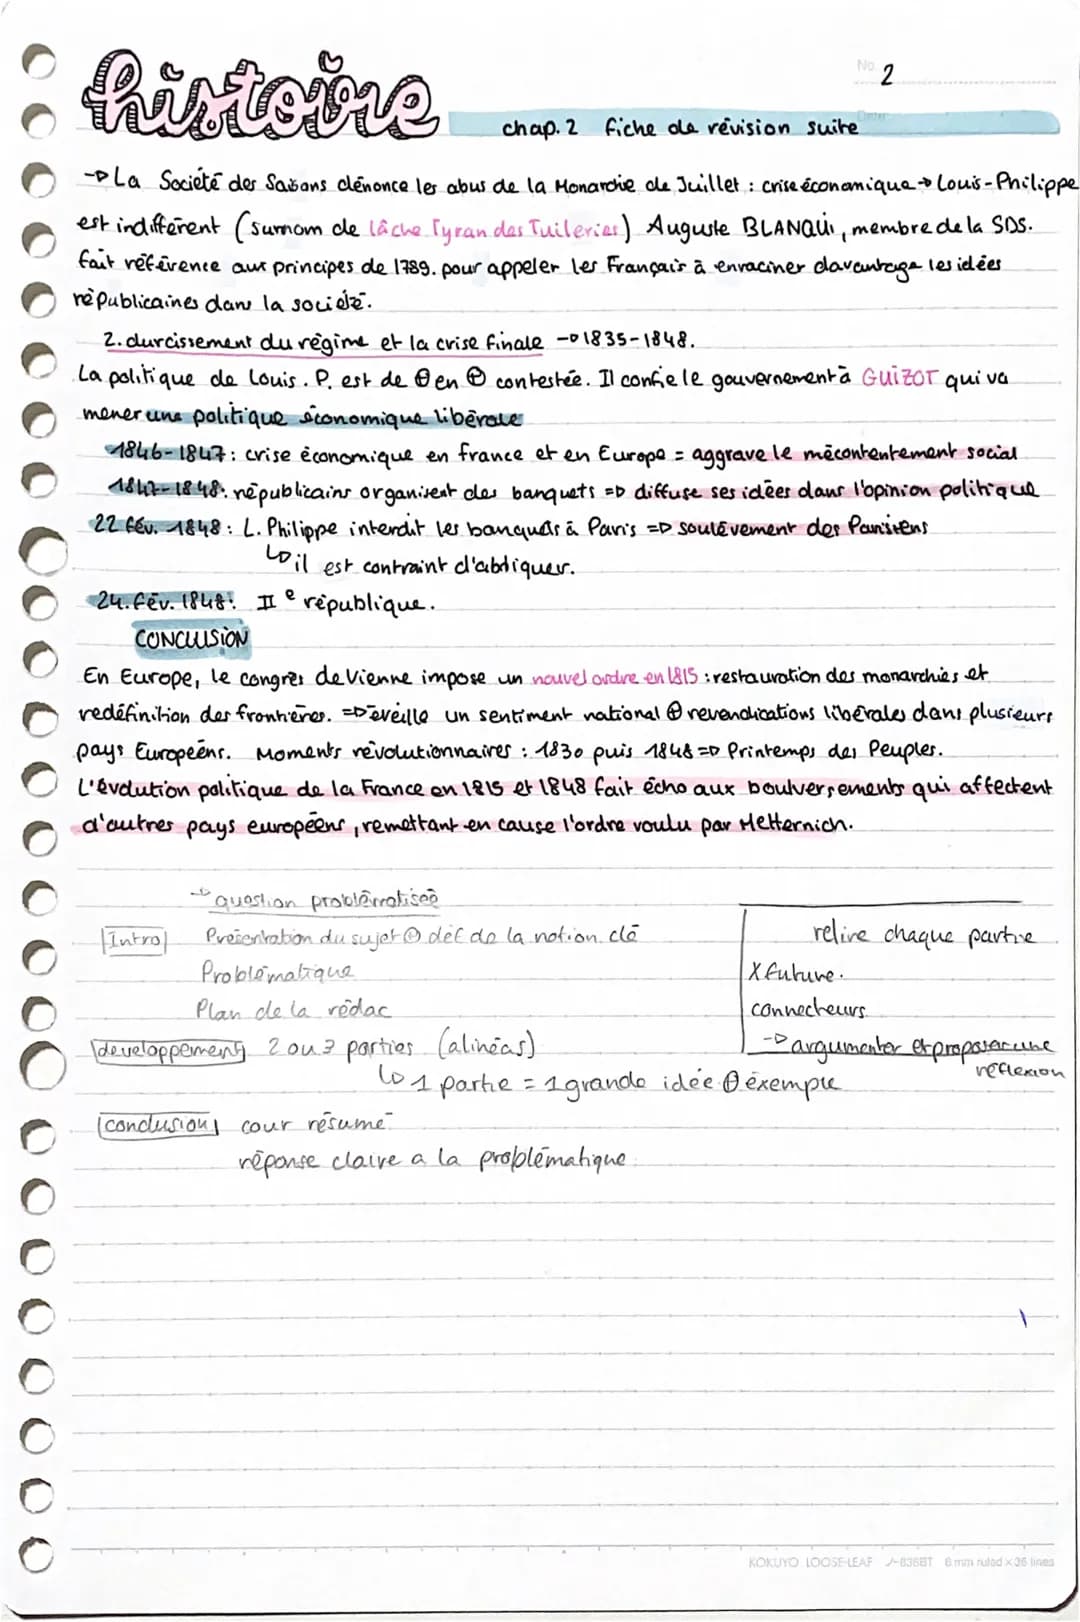 histoire
No. 2
Date
chap. 2 fiche de révision suite
→ La Société des Saisons dénonce les abus de la Monarchie de Juillet : crise économique → Louis-Philippe
est indifférent (surnom de lâche Tyran des Tuileries) Auguste BLANQUI, membre de la SDS.
fait référence aux principes de 1789. pour appeler les Français à enraciner davantage les idées
républicaines dans la société.
2. durcissement du régime et la crise finale → 1835-1848.
La politique de Louis. P. est de ⊕ en ⊕ contestée. Il confie le gouvernement à GUIZOT qui va
mener une politique économique libérale
1846-1847 : crise économique en france et en Europe = aggrave le mécontentement social
1847-1848: républicains organisent des banquets => diffuse ses idées dans l'opinion politique
22 fév. 1848 : L. Philippe interdit les banquets à Paris => soulèvement des Parisiens
↳ il est contraint d'abdiquer.
24. fév. 1848: II e république.
CONCLUSION
En Europe, le congrès de Vienne impose un nouvel ordre en 1815 : restauration des monarchies et
redéfinition des frontières. => éveille un sentiment national ⊕ revendications libérales dans plusieurs
pays Européens. Moments révolutionnaires : 1830 puis 1848 => Printemps des Peuples.
L'évolution politique de la France en 1815 et 1848 fait écho aux boulversements qui affectent
d'autres pays européens, remettant en cause l'ordre voulu par Metternich.
→ question problématisée
Intro Présentation du sujet ⊕ déf de la notion clé
Problématique
Plan de la rédac
développement 2 ou 3 parties (alinéas)
↳ 1 partie = 1 grande idée ⊕ éxemple
conclusion cour résumé
réponse claire a la problématique
relire chaque partie
X future.
connecteurs
→ argumenter et proposer une
réflexion
KOKUYO LOOSE-LEAF ノ-836BT 6 mm ruled × 36 lines